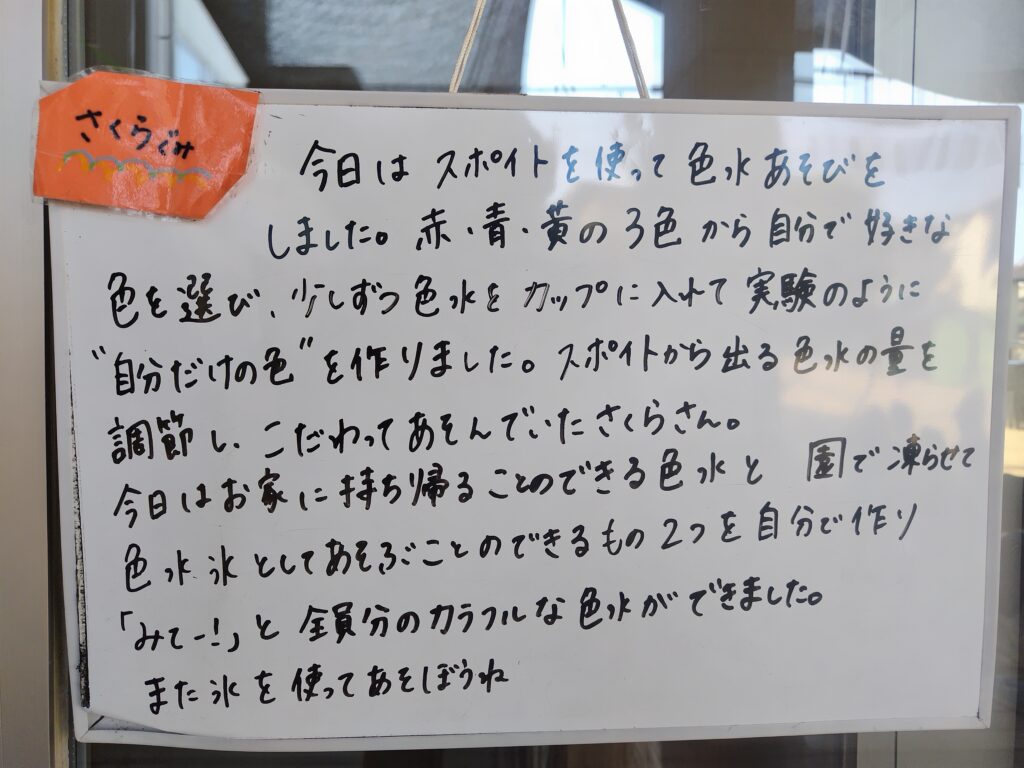 さくらぐみ
今日は スポイトを使って色水あそびを
しました。赤・青・黄の3色から自分で好きな
色を選び、少しずつ色水をカップに入れて実験のように
"自分だけの色"を作りました。スポイトから出る色水の量を
調節し、こだわってあそんでいたさくらさん。
今日はお家に持ち帰ることのできる色水と 園で凍らせて
色水氷としてあそぶことのできるもの2つを自分で作り
「みてー!」と全員分のカラフルな色水ができました。
また氷を使ってあそぼうね